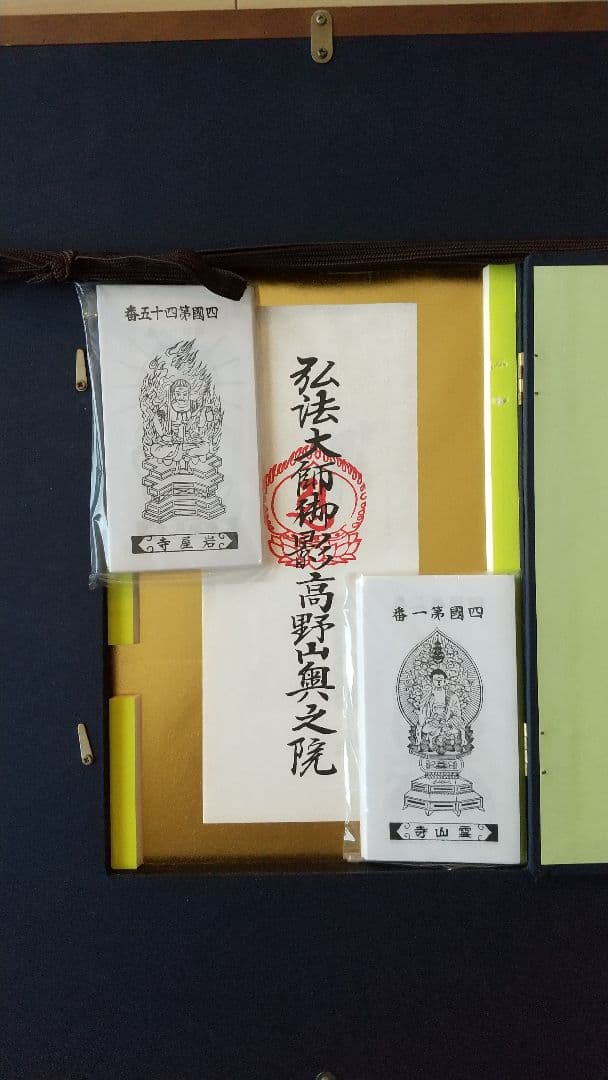 四國第四十五番
岩屋寺
弘法大師御影高野山奥之院
四國第一番
霊山寺